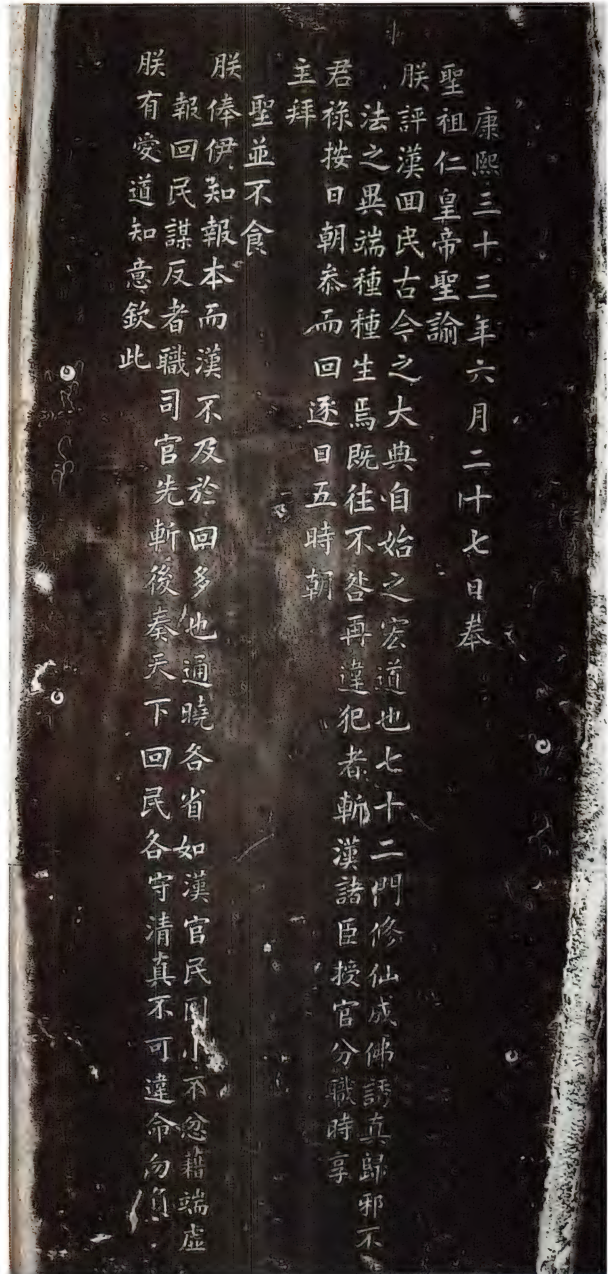 康熙三十三年六月二十七日奉
聖祖仁皇帝聖諭
朕評漢回民古今之大典自始之宏道也七十二門修仙成佛誘真歸邪不
法之異端種種生焉既往不咎再違犯者斬漢諸臣授官分職時享
君祿按日朝叅而回逐日五時朝
主拜
聖並不食
朕俸伊知報本而漢不及於回多也通曉各省如漢官民因小不忿藉端虛
報回民謀反者職司官先斬後奏天下回民各守清真不可違命勿負
朕有愛道知意欽此